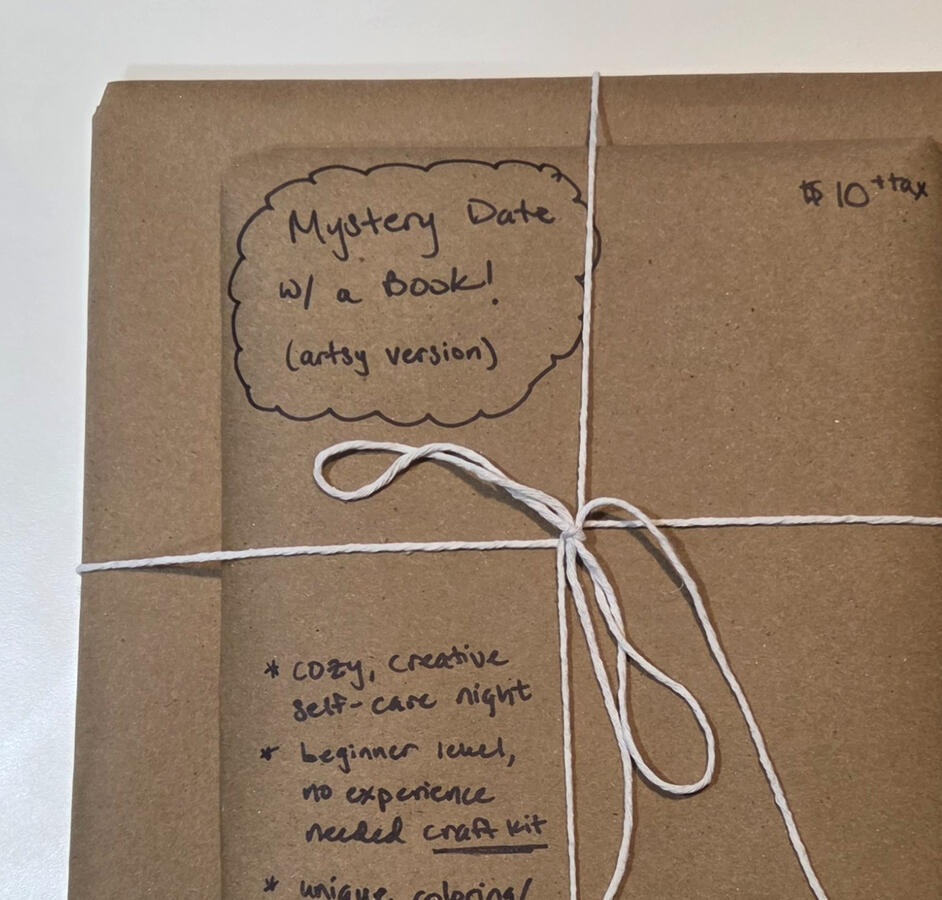 Mystery Date
w/ a Book!
(artsy version)
$10 + tax
* cozy, creative
self-care night
* beginner level,
no experience
needed craft kit
* unique, coloring/